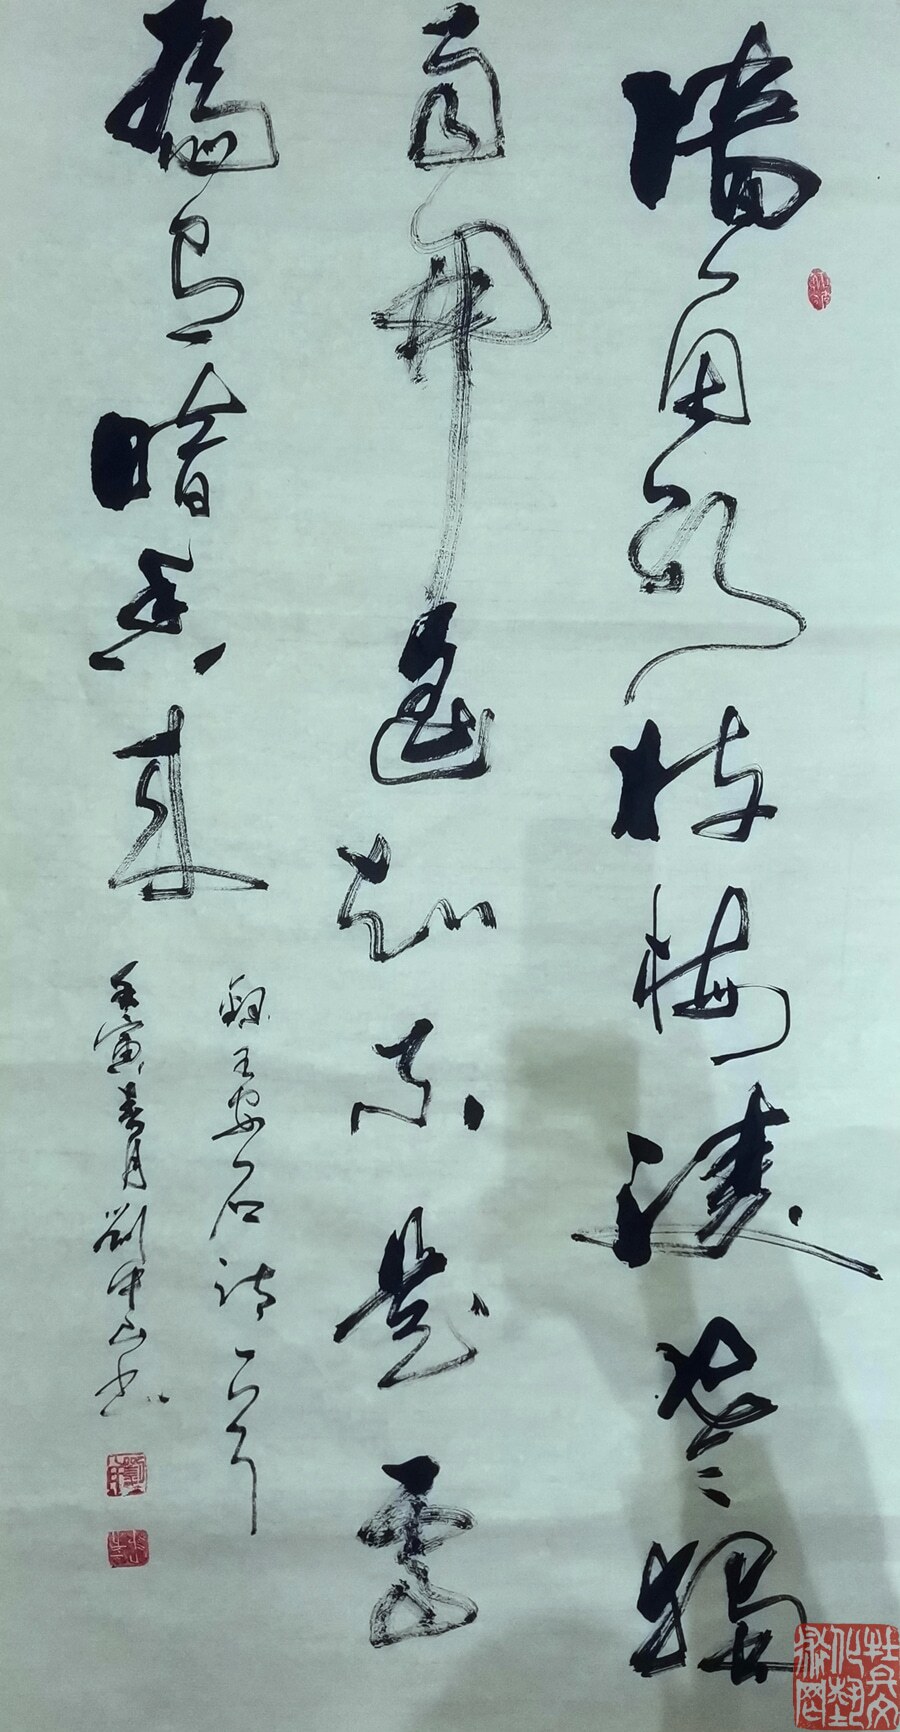 墙角数枝梅凌寒独
自开遥知不是雪
为有暗香来
录王安石诗一首
壬寅春月刘中山书
牡丹文化艺术网